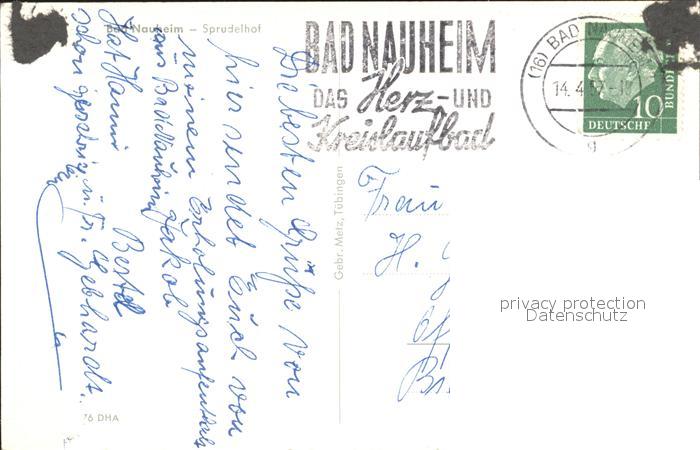 Bad Nauheim – Sprudelhof
BAD NAUHEIM
DAS Herz- UND
Kreislaufbad
(16) BAD NAUHEIM
14.4.57
g
10
DEUTSCHE
BUNDESPOST
Die besten Grüße von
hier sendet Euch von
meinem Erholungsaufenthalt
aus Bad Nauheim Jakob
Bertel
Hat Hanni
schon u. Fr. Gebhardt.
Gebr. Metz, Tübingen
Frau
H.
76 DHA
privacy protection
Datenschutz